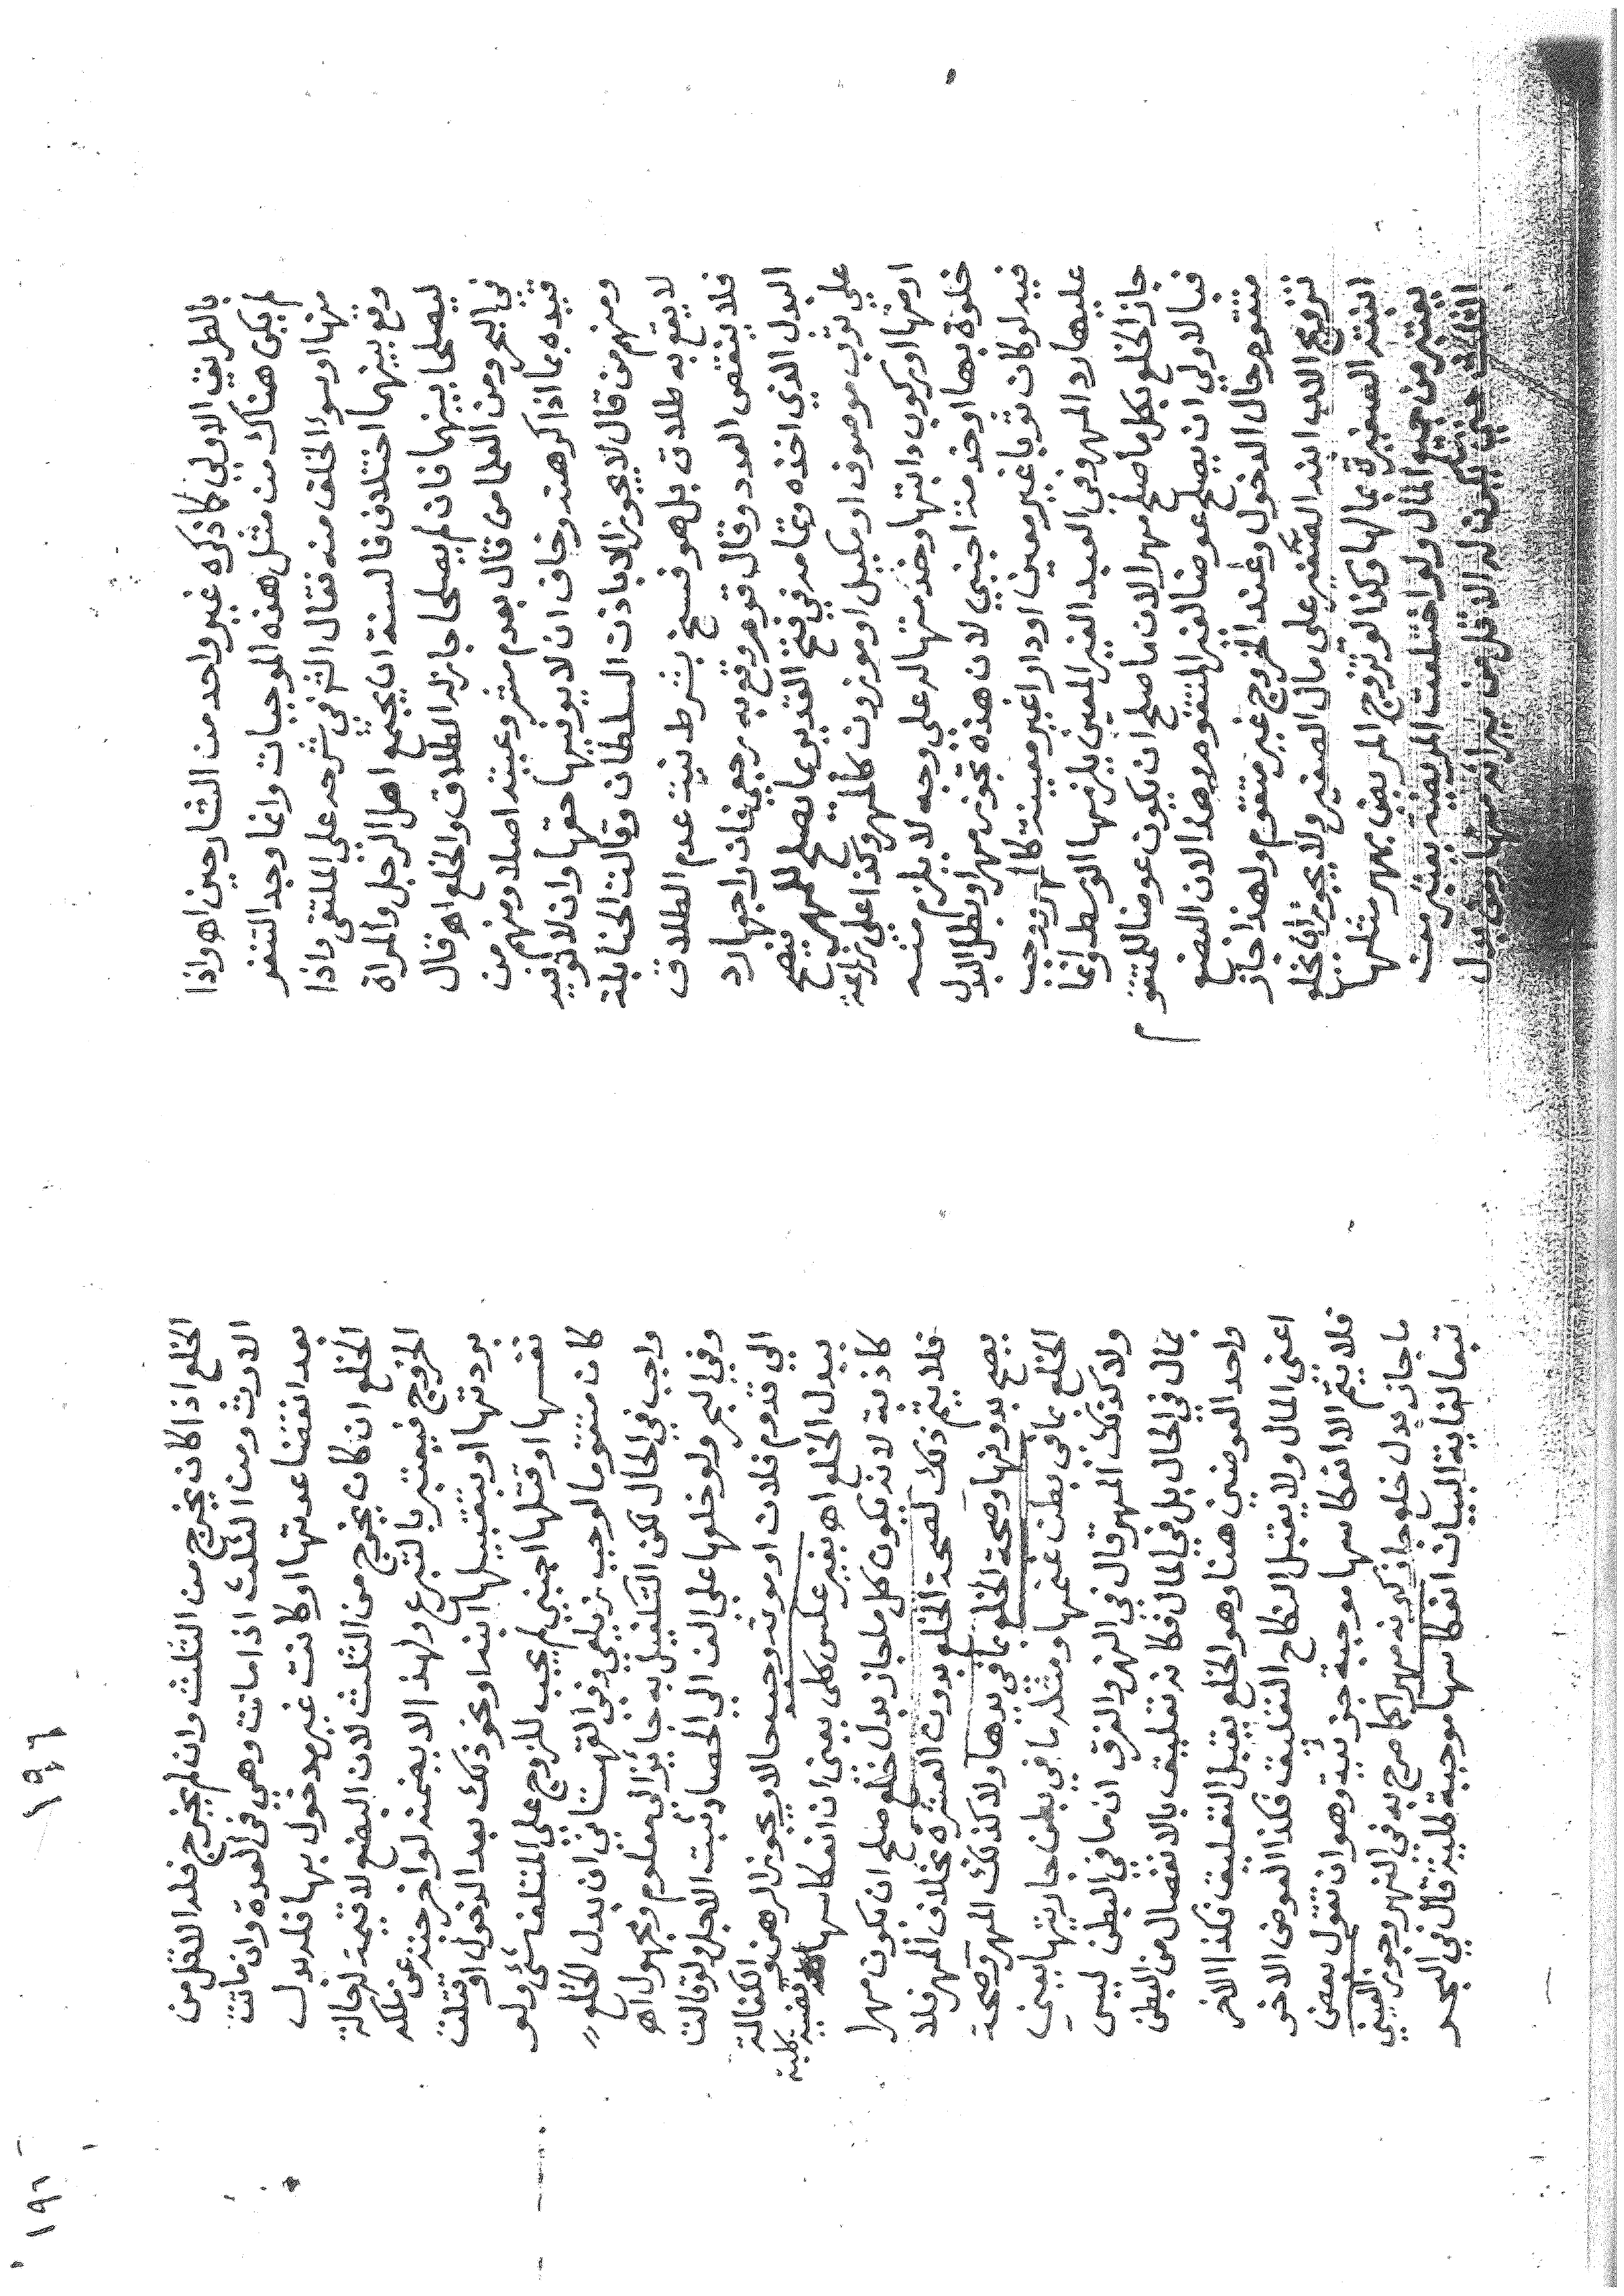 بالطريق الاولي كما ذكره غير واحد من الشارحين اه واذا
لم يكن هناك من مثل هذه الموجبات وانما وجد التنفر
منها او سوء الخلق منه فقال الشرفي شرحه على الملتقى واذا
وقع بينهما اختلاف فالسنة ان يجتمع اهل الرجل والمراة
ليصلحا بينهما فان لم يصلحا جاز له الطلاق والخلع اه قال
في البحر ومن العلما من قال بعدم مشروعيته اصلا ومنهم من
قيده بما اذا كرهته وخاف ان لا يوفيها حقها وان لا توفيه
ومنهم من قال لا يجوز الا باذن السلطان وقالت الحنابلة
لا يقع به طلاق بل هو فسخ بشرط نية عدم الطلاق
فلا ينتقص العدد وقال قوم وقع به رجعي فان راجعها رد
البدل الذي اخذه وتمامه في فتح القدير بما يصلح للمهر فيصح
على ثوب موصوف او مكيل او موزون كالمهر وكذا على زراعة
ارضها او ركوب دابتها وخدمتها له على وجه لا يلزم منه
خلوة بها او خدمة اجنبي لان هذه تجوز مهرا وبطل البدل
فيه لو كان ثوبا غير معين او دارا غير معينة كالمهر ووجب
عليها رد المهر وفي العبد الغير المعين يلزمها الوسط وانما
جاز الخلع بكل ما صلح مهرا لان ما صلح ان يكون عوضا للمتقوم
فبالاولى ان يصلح عوضا لغير المتقوم وهذا لان البضع
متقوم حال الدخول وعند الخروج غير متقوم ولهذا جاز
تزويج الاب ابنه الصغير على مال الصغير ولا يجوز ان يخلع
ابنته الصغيرة بمالها وكذا لو تزوج المريض بمهر مثلها
يعتبر من جميع المال ولو اختلعت المريضة يعتبر من
الثلث حتى يكون له الاقل من ميراثه منها ومن بدل
١٩٦
الخلع اذا كان يخرج من الثلث وان لم يخرج فله الاقل من
الارث ومن الثلث اذا ماتت وهي في العدة وان ماتت
بعد انقضا عدتها او كانت غير مدخول بها فله بدل
الخلع ان كان يخرج من الثلث لان البضع لا قيمة له حالة
الخروج فيعتبر بالتبرع ولهذا لا يضمنه لو اخرجته عن ملكه
بردتها او بتقبيلها ابنه او نحو ذلك بعد الدخول او قتلت
نفسها او قتلها اجنبي لم يجب للزوج على المتلف شئ ولو
كان متقوما لوجب زيلعي وفي القهستاني ان بدل الخلع
واجب في الحال لكن التكفيل به جائز الى معلوم ومجهول اه
وفي البحر ولو خلعها على الف الي الحصاد يثبت الاجل ولو قالت
الي قدوم فلان او موته وجب حالا ويجوز الرهن والكفالة
ببدل الخلع اه بغير عكس كلى يعني ان انعكاسها قضية كلية
كاذبة لانه يكون كل ما جاز بدل خلع صلح ان يكون مهرا
فلا يتم ذلك لصحة الخلع بدون العشرة بخلاف المهر فلا
يصح بدونها وصحة الخلع بما في يدها ولا كذلك المهر وصحة
الخلع بما في بطن غنمها ومثله ما في بطن جاريتها يعني
ولا كذلك المهر قال في النهر والفرق ان ما في البطن ليس
بمال في الحال بل في المال فكانه تعليق بالانفصال من البطن
واحد العوضين هنا وهو الخلع يقبل التعليق فكذا الاخر
اعني المال ولا يقبل النكاح التعليق فكذا العوض الاخر
فلا يتم الا انعكاسها موجبة جزئية وهو ان تقول بعض
ما جاز بدل خلع جاز كونه مهرا كما صرح به في النهر وجوز العيني
تبعا لغاية البيان انعكاسها موجبة كلية قال في البحر
١٩٦